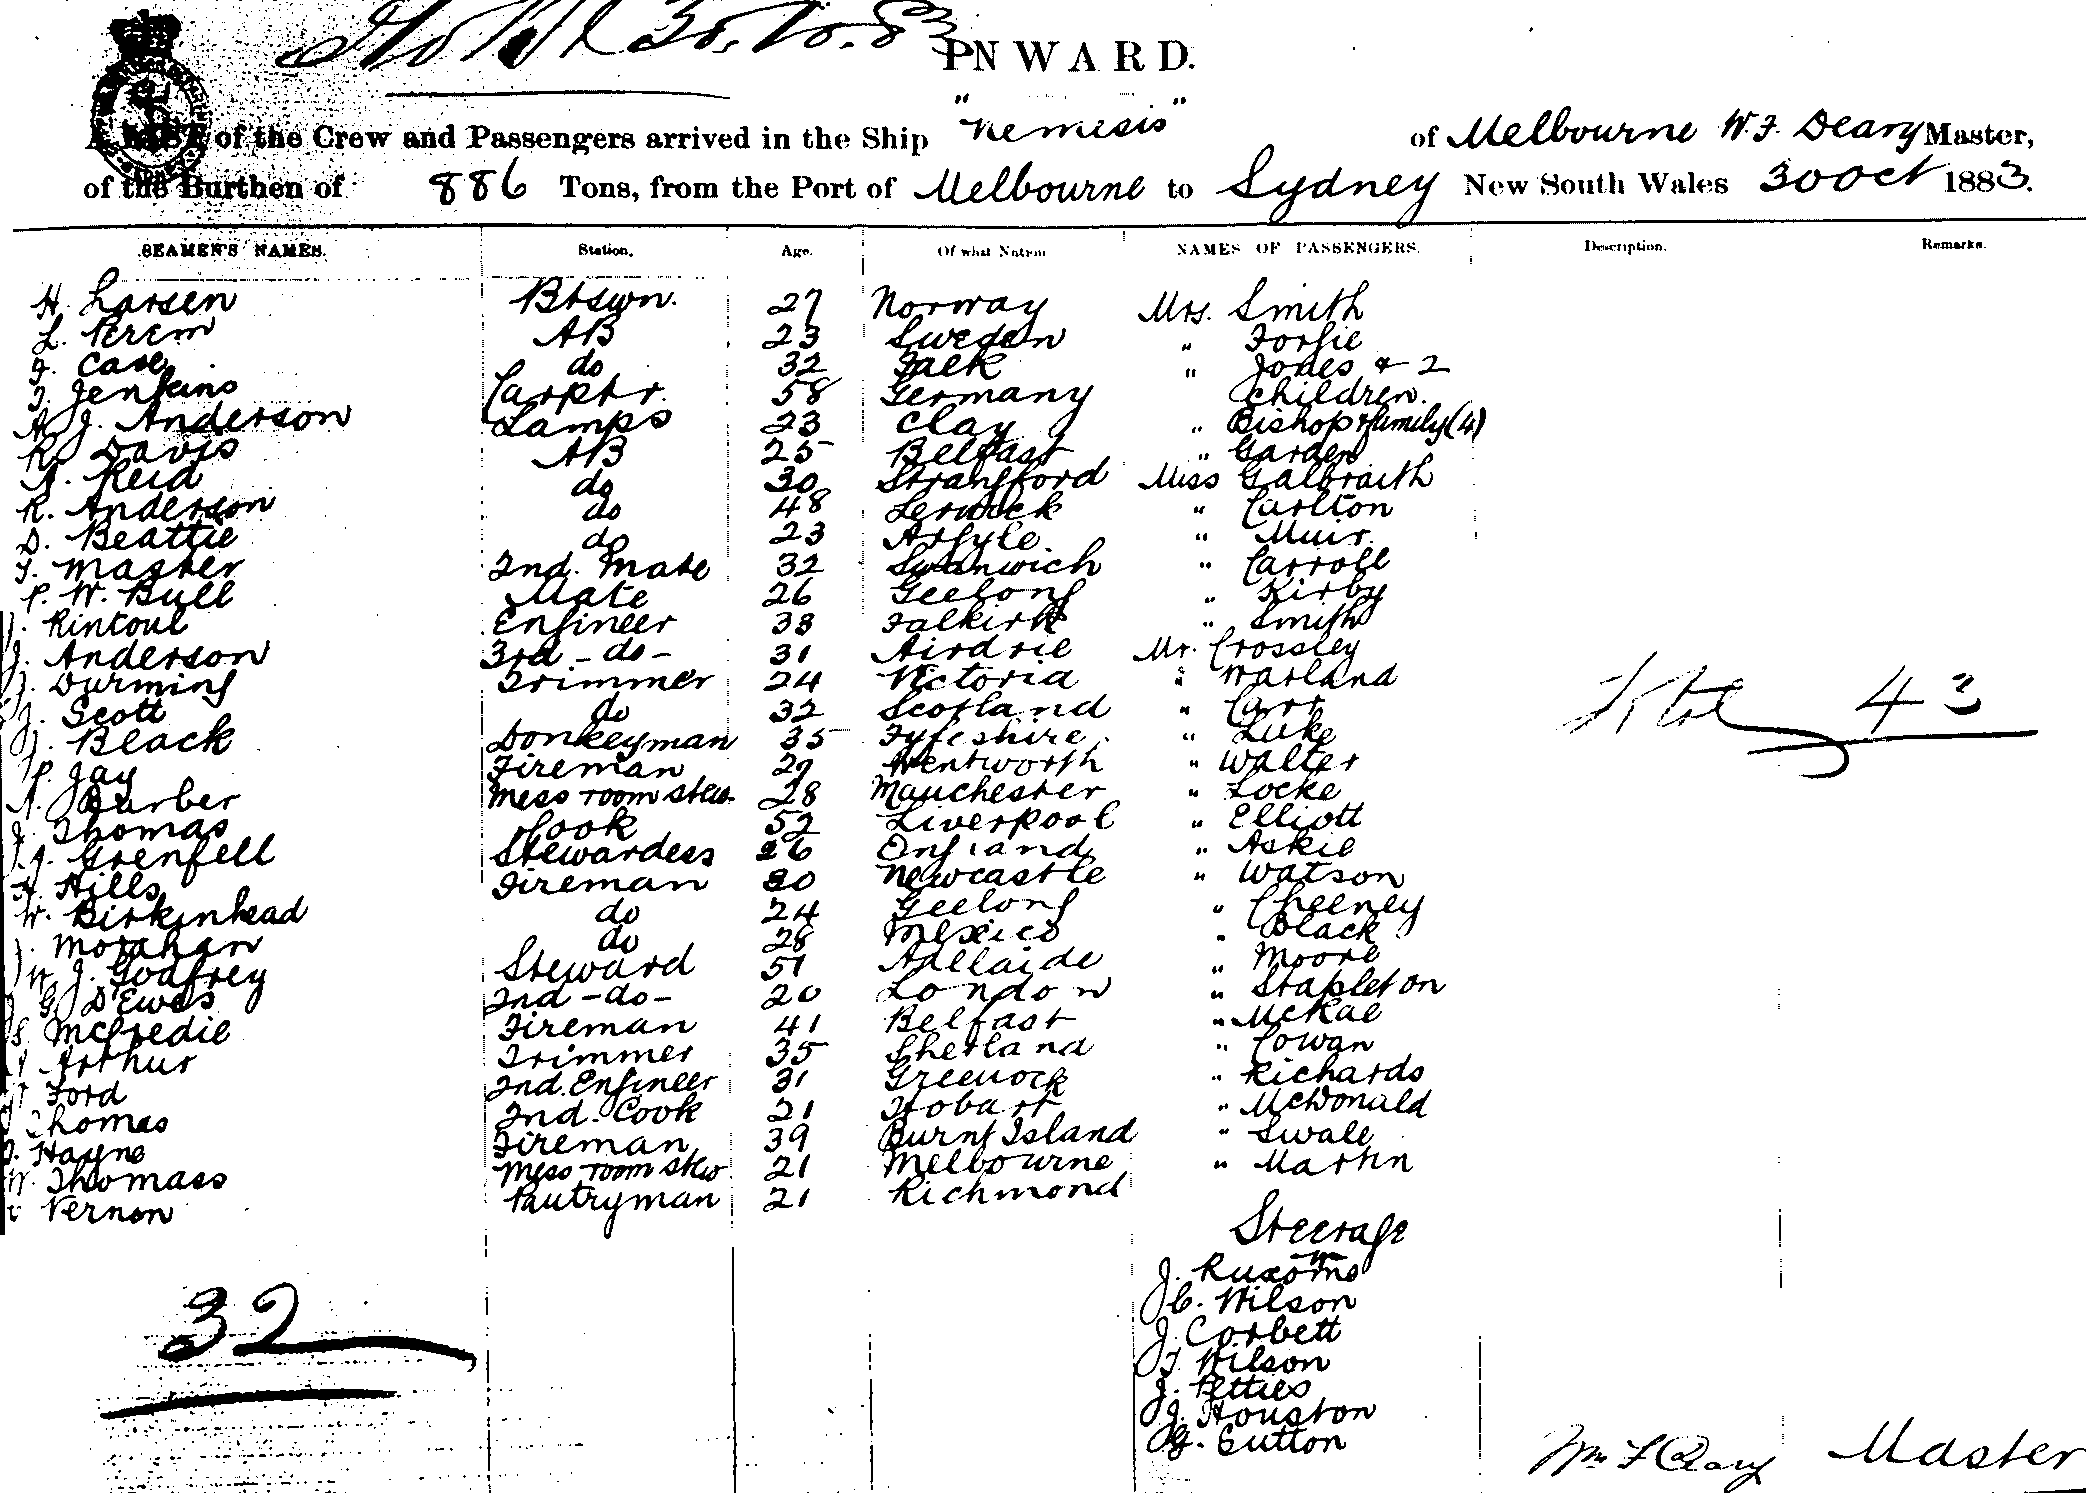 30.10.83
INWARD.
A LIST of the Crew and Passengers arrived in the Ship "Nemesis" of Melbourne W.F. Deary Master,
of the Burthen of 886 Tons, from the Port of Melbourne to Sydney New South Wales 30 Oct 1883.
SEAMEN'S NAMES. Station. Age. Of what Nation NAMES OF PASSENGERS. Description. Remarks.
H. Larsen Btswn. 27 Norway Mrs. Smith
L. Perem AB 23 Sweden " Forsie
J. Case do 32 Falk " Jones & 2
J. Jenkins Carptr. 58 Germany Children.
A. J. Anderson Lamps 23 Clay " Bishop & family (4)
R. Davis AB 25 Belfast " Garden
A. Reid do 30 Strangford Miss Galbraith
R. Anderson do 48 Lerwick " Carlton
D. Beattie do 23 Argyle. " Muir.
T. Master 2nd. Mate 32 Swanwich " Carroll
P. W. Bull Mate 26 Geelong " Kirby
J. Rintoul Engineer 33 Falkirk " Smith
J. Anderson 3rd -do- 31 Airdrie Mr. Crossley
J. Durming Trimmer 24 Victoria " Warland
J. Scott do 32 Scotland " Carr
J. Black Donkeyman 35 Fyfeshire. " Luke
P. Jay Fireman 27 Wentworth " Walter
A. Barber Mess room stew. 28 Manchester " Locke
J. Thomas Cook 52 Liverpool " Elliott
J. Grenfell Stewardess 26 England " Askie
H. Hills Fireman 30 Newcastle " Watson
W. Birkinhead do 24 Geelong " Cheeney
J. Monahan do 28 Mexico " Black
W. J. Godfrey Steward 51 Adelaide " Moore
G. D'Ewes 2nd -do- 20 London " Stapleton
McCredie Fireman 41 Belfast " McKae
Arthur Trimmer 35 Shetland " Cowan
Ford 2nd. Engineer 31 Greenock " Richards
Thomas 2nd. Cook 21 Hobart " McDonald
Hayne Fireman 39 Burnt Island " Swale
W. Thomass Mess room stew 21 Melbourne " Martin
Vernon Pantryman 21 Richmond
Total 43
Steerage
J. Ruxoms
C. Wilson
J. Corbett
T. Wilson
J. Petties
J. Houston
G. Sutton
32
Wm F Deary Master